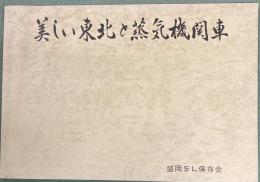 美しい東北と蒸気機関車
盛岡SL保存会